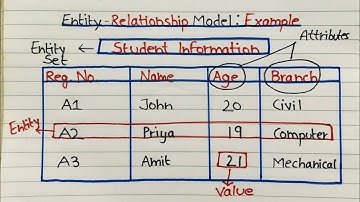 Entity-Relationship Model: Example
Attributes
Entity Set
Student Information
Reg. No Name Age Branch
A1 John 20 Civil
Entity
A2 Priya 19 Computer
A3 Amit 21 Mechanical
Value